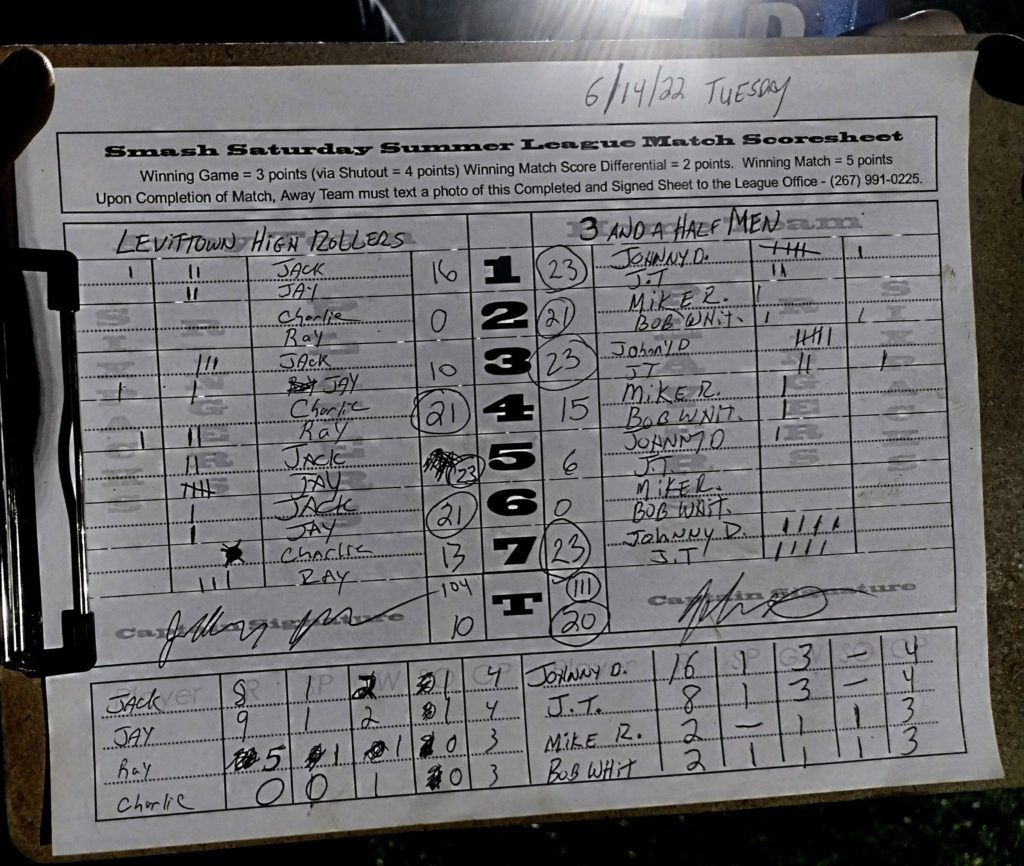 6/14/22 TUESDAY
Smash Saturday Summer League Match Scoresheet
Winning Game = 3 points (via Shutout = 4 points) Winning Match Score Differential = 2 points. Winning Match = 5 points
Upon Completion of Match, Away Team must text a photo of this Completed and Signed Sheet to the League Office - (267) 991-0225.
LEVITTOWN HIGH ROLLERS 3 AND A HALF MEN
JACK 16 1 23 JOHNNY D.
JAY J.T
Charlie 0 2 21 MIKE R.
Ray BOB WHIT.
JACK 10 3 23 Johnny D
JAY JT
Charlie 21 4 15 MIKE R.
Ray BOB WHIT.
JACK 23 5 6 JOHNNY D
JAY J.T.
JACK 21 6 0 MIKE R.
JAY BOB WHIT.
Charlie 13 7 23 JOHNNY D.
RAY J.T
104 T 111
Captain Signature 10 20 Captain Signature
JACK 8 1 2 1 4 JOHNNY D. 16 1 3 - 4
JAY 9 1 2 1 4 J.T. 8 1 3 - 4
Ray 5 1 1 0 3 MIKE R. 2 - 1 1 3
Charlie 0 0 1 0 3 BOB WHIT 2 1 1 1 3